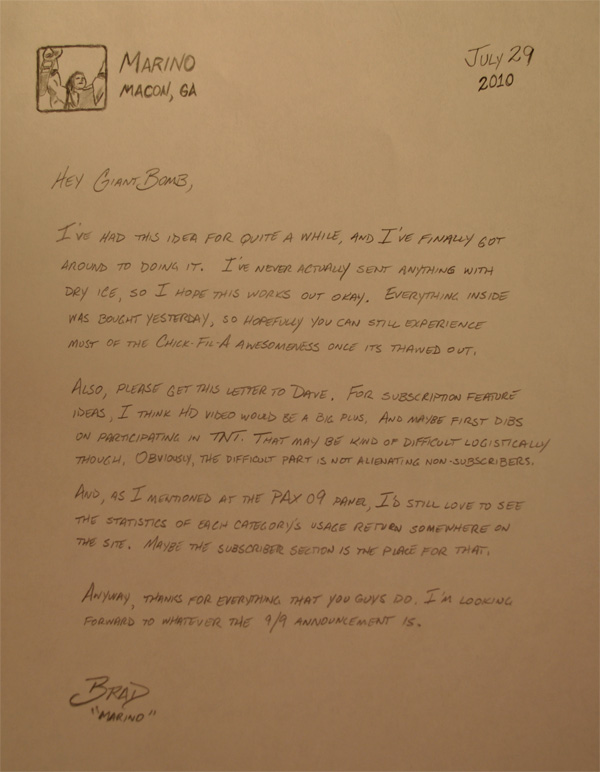 Marino
Macon, GA
July 29
2010
Hey Giant Bomb,
I've had this idea for quite a while, and I've finally got
around to doing it. I've never actually sent anything with
dry ice, so I hope this works out okay. Everything inside
was bought yesterday, so hopefully you can still experience
most of the Chick-Fil-A awesomeness once its thawed out.
Also, please get this letter to Dave. For subscription feature
ideas, I think HD video would be a big plus. And maybe first dibs
on participating in TNT. That may be kind of difficult logistically
though. Obviously, the difficult part is not alienating non-subscribers.
And, as I mentioned at the PAX 09 panel, I'd still love to see
the statistics of each category's usage return somewhere on
the site. Maybe the subscriber section is the place for that.
Anyway, thanks for everything that you guys do. I'm looking
forward to whatever the 9/9 announcement is.
Brad
"Marino"